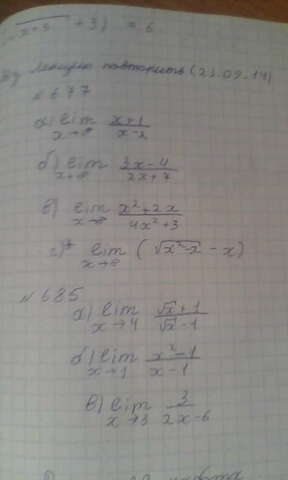 √x+3 + 3) = 6
Ду Лекцию повторить (23.09.14)
№ 677
а) lim x→∞ x+1/x-2
б) lim x→∞ 3x-4/2x+7
в) lim x→∞ x²+2x/4x²+3
г)* lim x→∞ (√x²-x - x)
№ 685
а) lim x→4 √x+1/√x-1
б) lim x→1 x²-1/x-1
в) lim x→3 3/2x-6